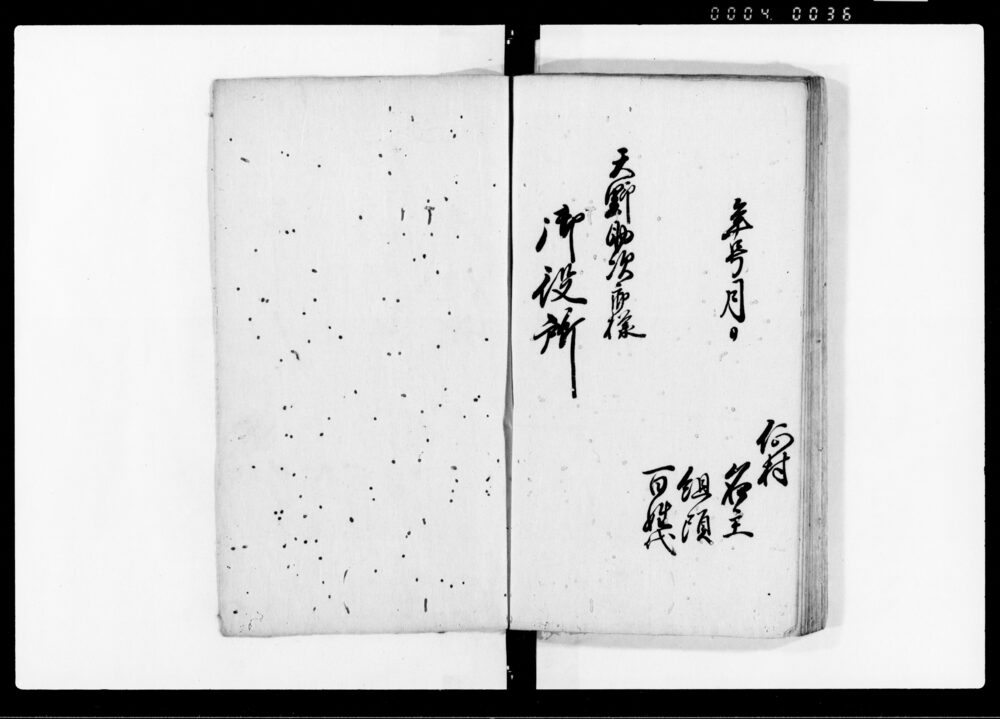 0004 0036
年号月日
何村
名主
組頭
百姓代
天野助次郎様
御役所